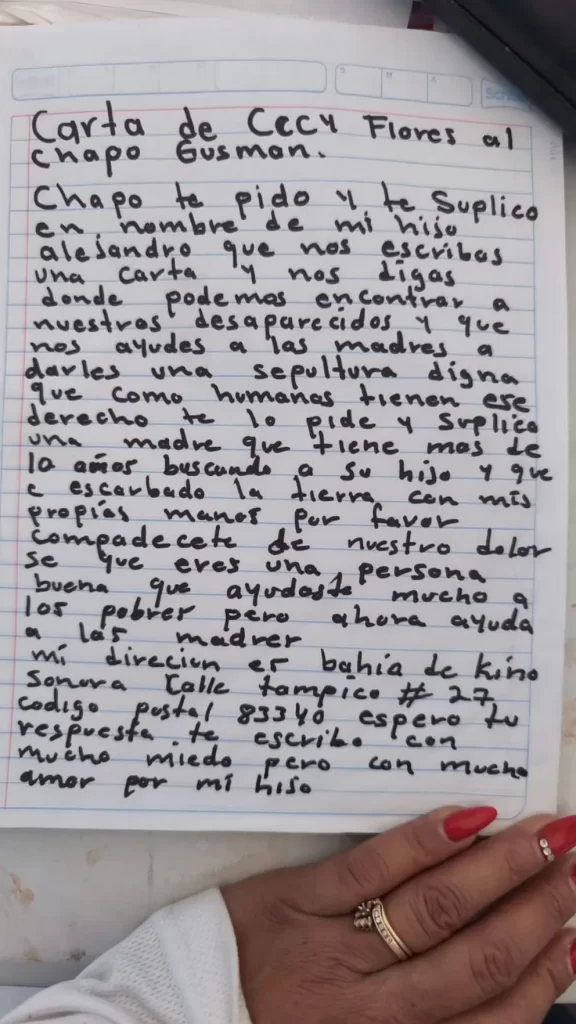 Carta de Cecy Flores al
chapo Gusman.
Chapo te pido y te Suplico
en nombre de mi hijo
alejandro que nos escribas
una carta y nos digas
donde podemos encontrar a
nuestros desaparecidos y que
nos ayudes a las madres a
darles una sepultura digna
que como humanos tienen ese
derecho te lo pide y suplico
una madre que tiene mas de
10 años buscando a su hijo y que
e escarbado la tierra con mis
propias manos por favor
compadecete de nuestro dolor
se que eres una persona
buena que ayudaste mucho a
los pobrer pero ahora ayuda
a las madrer
mi direcion es bahia de kino
Sonora Calle tampico # 27
codigo postal 83340 espero tu
respuesta te escribo con
mucho miedo pero con mucho
amor por mi hijo